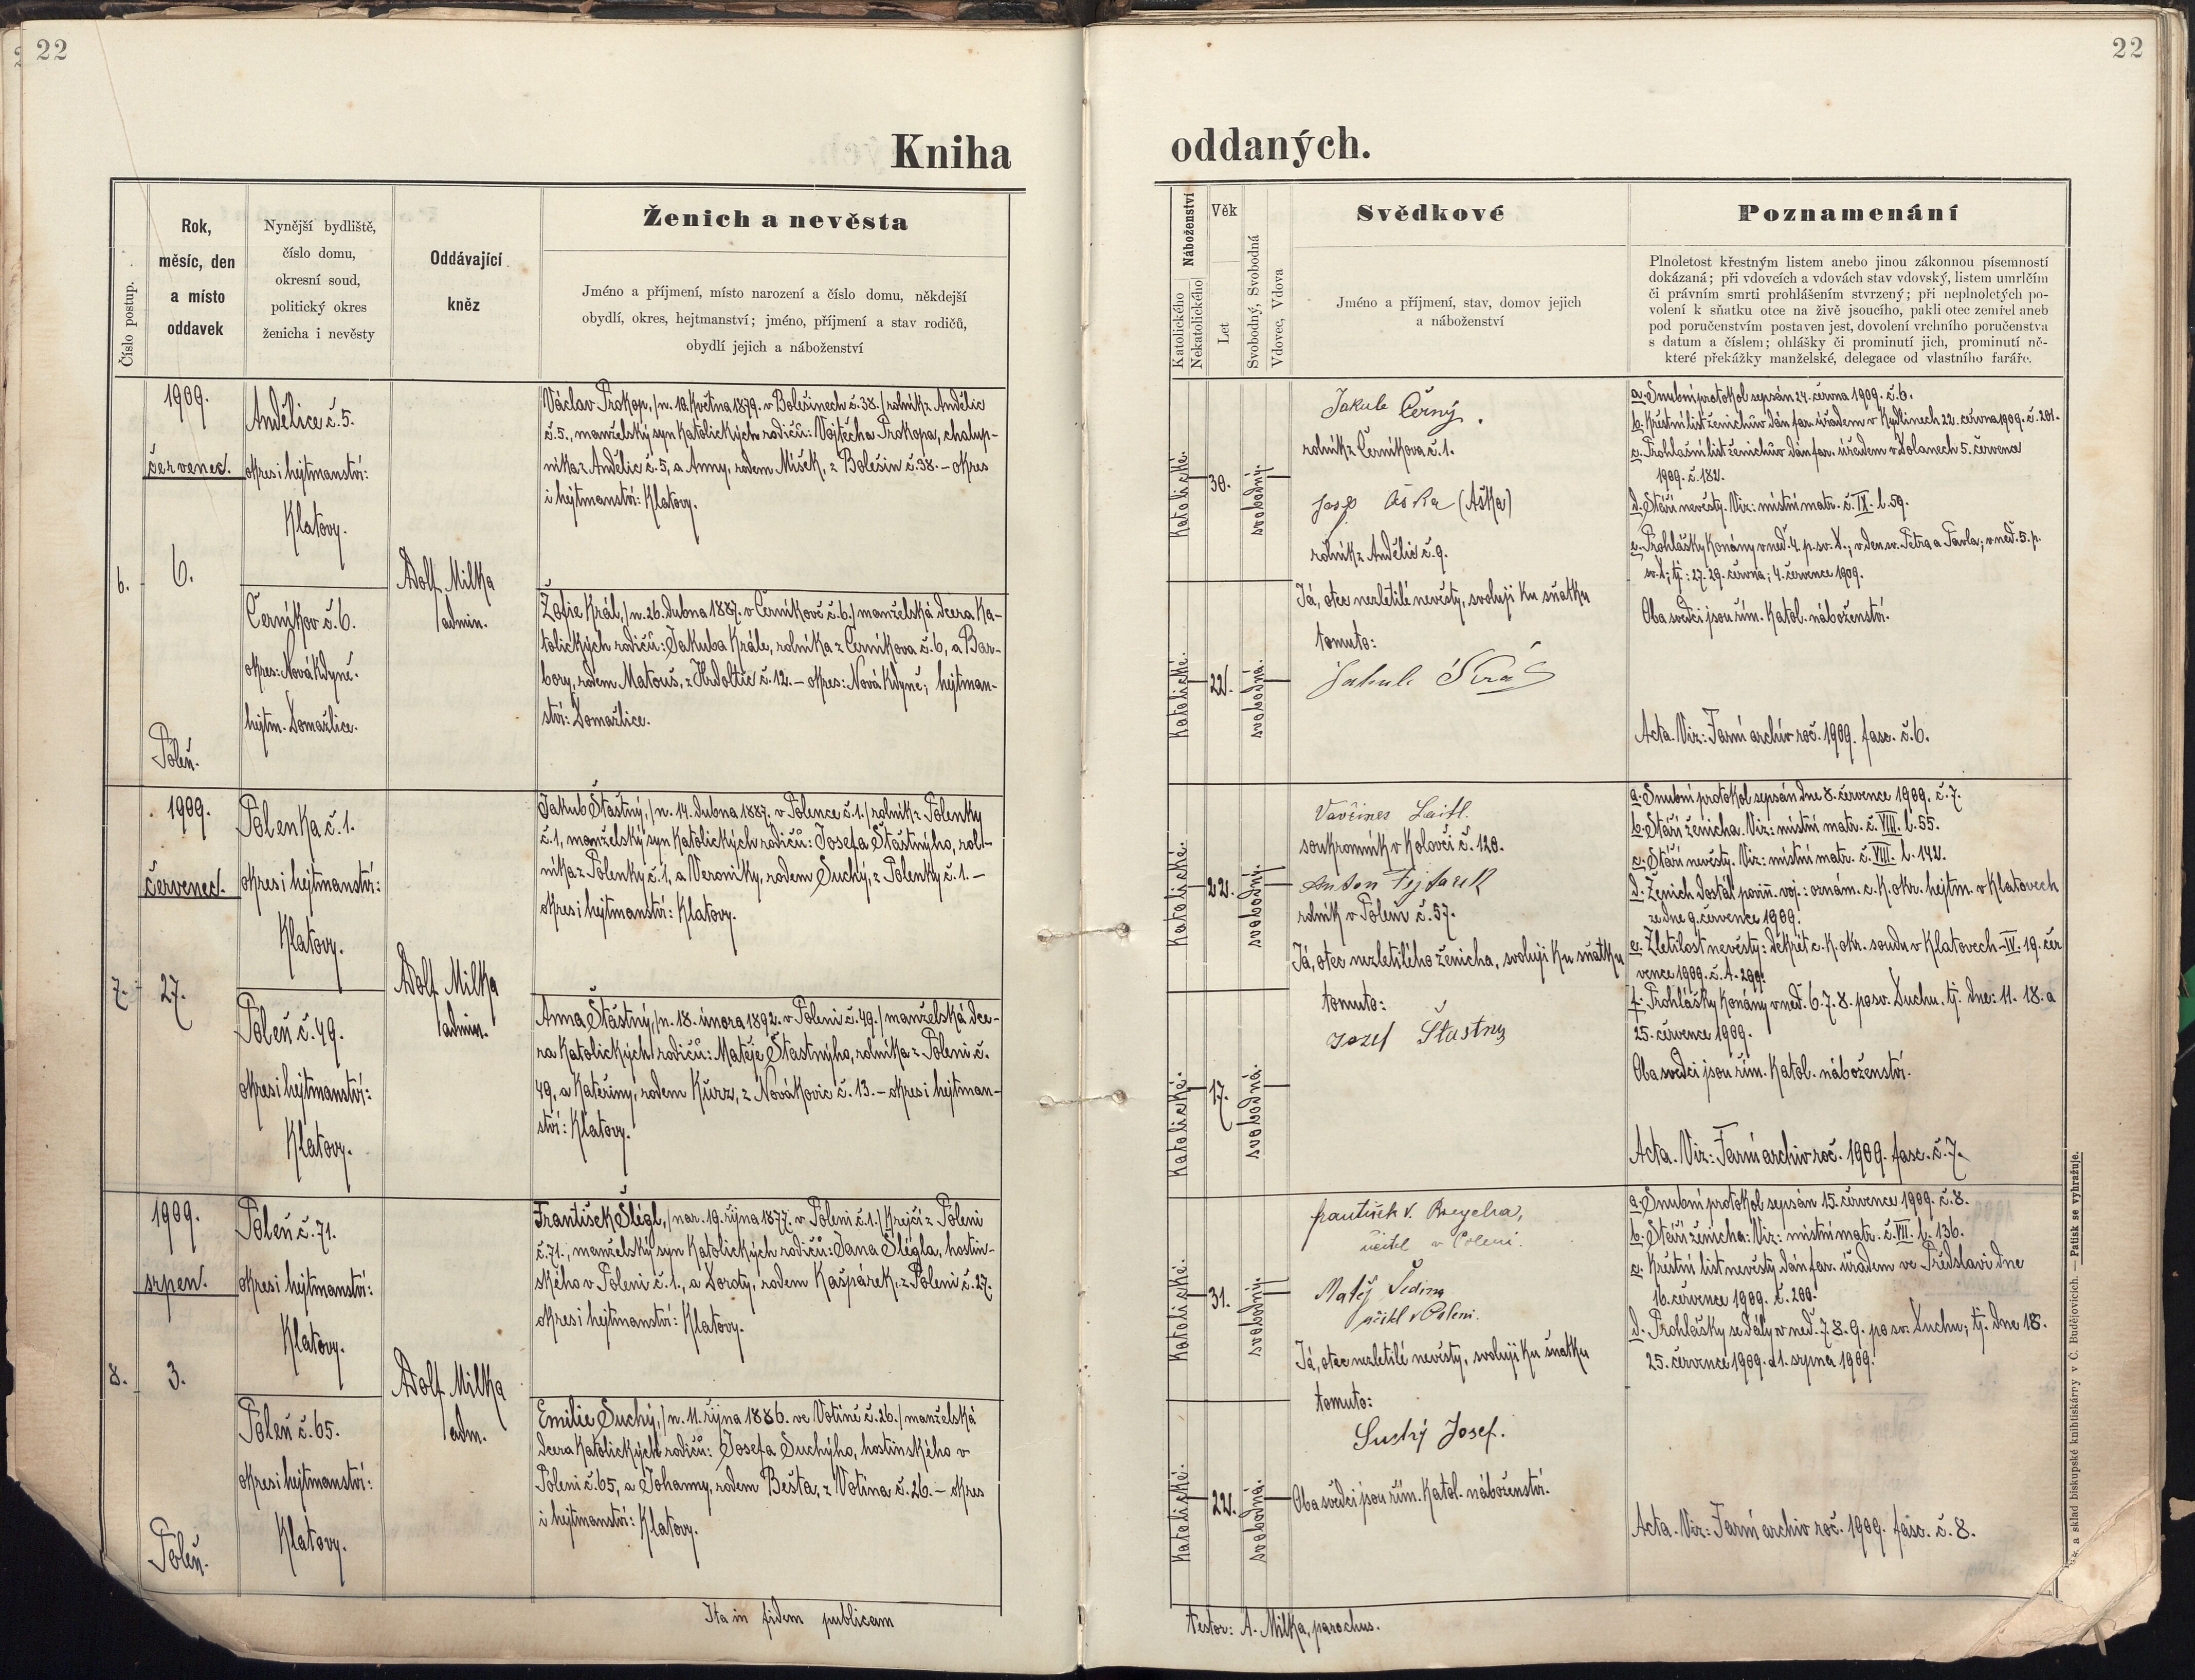 22
22
Kniha
oddaných.
Číslo postup.
Rok,
měsíc, den
a místo
oddavek
Nynější bydliště,
číslo domu,
okresní soud,
politický okres
ženicha i nevěsty
Oddávající
kněz
Ženich a nevěsta
Jméno a příjmení, místo narození a číslo domu, někdejší
obydlí, okres, hejtmanství; jméno, příjmení a stav rodičů,
obydlí jejich a náboženství
Náboženství
Katolického
Nekatolického
Věk
Let
Svobodný, Svobodná
Vdovec, Vdova
Svědkové
Jméno a příjmení, stav, domov jejich
a náboženství
Poznamenání
Plnoletost křestným listem anebo jinou zákonnou písemností
dokázaná; při vdovcích a vdovách stav vdovský, listem umrlčím
či právním smrti prohlášením stvrzený; při neplnoletých po-
volení k sňatku otce na živě jsoucího, pakli otec zemřel aneb
pod poručenstvím postaven jest, dovolení vrchního poručenstva
s datum a číslem; ohlášky či prominutí jich, prominutí ně-
které překážky manželské, delegace od vlastního faráře.
6.
1909.
červenec.
6.
Poleň.
Andělice č. 5.
okres i hejtmanství:
Klatovy.
Černíkov č. 6.
okres: Nová Kdyně.
hejtm. Domažlice.
Adolf Milka
admin.
Václav Prokop, /n. 18. května 1879. v Bolešinech č. 38./ rolník z Andělic
č. 5., manželský syn katolických rodičů: Vojtěcha Prokopa, chalup-
níka z Andělic č. 5, a Anny, rodem Míšek, z Bolešin č. 38. – okres
i hejtmanství: Klatovy.
Žofie Král, /n. 26. dubna 1887. v Černíkově č. 6./ manželská dcera ka-
tolických rodičů: Jakuba Krále, rolníka z Černíkova č. 6, a Bar-
bory, rodem Matouš, z Hrdoltic č. 12. – okres: Nová Kdyně; hejtman-
ství: Domažlice.
Katolické.
30.
svobodný.
Katolické.
22.
svobodná.
Jakub Černý.
rolník z Černíkova č. 1.
Aška (Aška)
rolník z Andělic č. 9.
Já, otec nezletilé nevěsty, svoluji ku sňatku
tomuto:
Jakub Král
a. Snubní protokol sepsán 24. června 1909. č. 6.
b. Křestní list ženichův dán far. úřadem v Kydlinech 22. června 1909. č. 201.
c. Prohlašní list ženichův dán far. úřadem v Dolanech 5. července
1909. č. 182.
d. Stáří nevěsty. Viz: místní matr. č. IX. l. 59.
e. Prohlášky konány v neď. 4. p. sv. D.; v den sv. Petra a Pavla; v neď. 5. p.
sv. D.; tj.: 27. 29. června; 4. července 1909.
Oba svědci jsou řím. katol. náboženství.
Acta. Viz: Farní archiv roč. 1909. fasc. č. 6.
7.
1909.
červenec.
27.
Polenka č. 1.
okres i hejtmanství:
Klatovy.
Poleň č. 49.
okres i hejtmanství:
Klatovy.
Adolf Milka
admin.
Jakub Šťastný, /n. 14. dubna 1887. v Polence č. 1./ rolník z Polenky
č. 1, manželský syn katolických rodičů: Josefa Šťastnýho, rol-
níka z Polenky č. 1, a Veroniky, rodem Suchý, z Polenky č. 1. –
okres i hejtmanství: Klatovy.
Anna Šťastný, /n. 18. února 1892. v Poleni č. 49./ manželská dce-
ra katolických rodičů: Matěje Šťastnýho, rolníka z Poleni č.
49, a Kateřiny, rodem Kurz, z Novákovic č. 13. – okres i hejtman-
ství: Klatovy.
Katolické.
22.
svobodný.
Katolické.
17.
svobodná.
Vavřinec Laitl.
soukromník v Kolovči č. 120.
Anton Fejfarek
rolník v Poleni č. 57.
Já, otec nezletilého ženicha, svoluji ku sňatku
tomuto:
Jozef Šťastny
a. Snubní protokol sepsán dne 8. července 1909. č. 7.
b. Stáří ženicha. Viz: místní matr. č. VIII. l. 55.
c. Stáří nevěsty. Viz: místní matr. č. VIII. l. 142.
d. Ženich dostál povin. voj.: oznám. c. k. okr. hejtm. v Klatovech
ze dne 9. července 1909.
e. Zletilost nevěsty: dekret c. k. okr. soudu v Klatovech – IV. 19. čer
vence 1909. č. A. 299.
f. Prohlášky konány v neď. 6. 7. 8. po sv. Duchu, tj. dne: 11. 18. a
25. července 1909.
Oba svědci jsou řím. katol. náboženství.
Acta. Viz: Farní archiv roč. 1909. fasc. č. 7.
8.
1909.
srpen.
3.
Poleň.
Poleň č. 71.
okres i hejtmanství:
Klatovy.
Poleň č. 65.
okres i hejtmanství:
Klatovy.
Adolf Milka
adm.
František Šlégl, /nar. 19. října 1877. v Poleni č. 1./ krejčí z Poleni
č. 71., manželský syn katolických rodičů: Jana Šlégla, hostin-
ského v Poleni č. 1., a Doroty, rodem Kašpárek, z Poleni č. 27.
okres i hejtmanství: Klatovy.
Emilie Suchý, /n. 11. října 1886. ve Votíně č. 26./ manželská
dcera katolických rodičů: Josefa Suchýho, hostinského v
Poleni č. 65, a Johanny, rodem Bešta, z Votína č. 26. – okres
i hejtmanství: Klatovy.
Katolické.
31.
svobodný.
Katolické.
22.
svobodná.
František V.
učitel v Poleni.
Matěj Šedina
učitel v Poleni.
Já, otec nezletilé nevěsty, svoluji ku sňatku
tomuto:
Suchý Josef.
Oba svědci jsou řím. katol. náboženství.
a. Snubní protokol sepsán 15. července 1909. č. 8.
b. Stáří ženicha: Viz: místní matr. č. VII. l. 136.
c. Křestní list nevěsty dán far. úřadem ve Předslavi dne
16. července 1909. č. 200.
d. Prohlášky se dály v neď. 7. 8. 9. po sv. Duchu; tj. dne 18.
25. července 1909. a 1. srpna 1909.
Acta. Viz: Farní archiv roč. 1909. fasc. č. 8.
a sklad biskupské knihtiskárny v Č. Budějovicích. — Patisk se vyhražuje.
Ita in fidem publicam
testor: A. Milka, parochus.